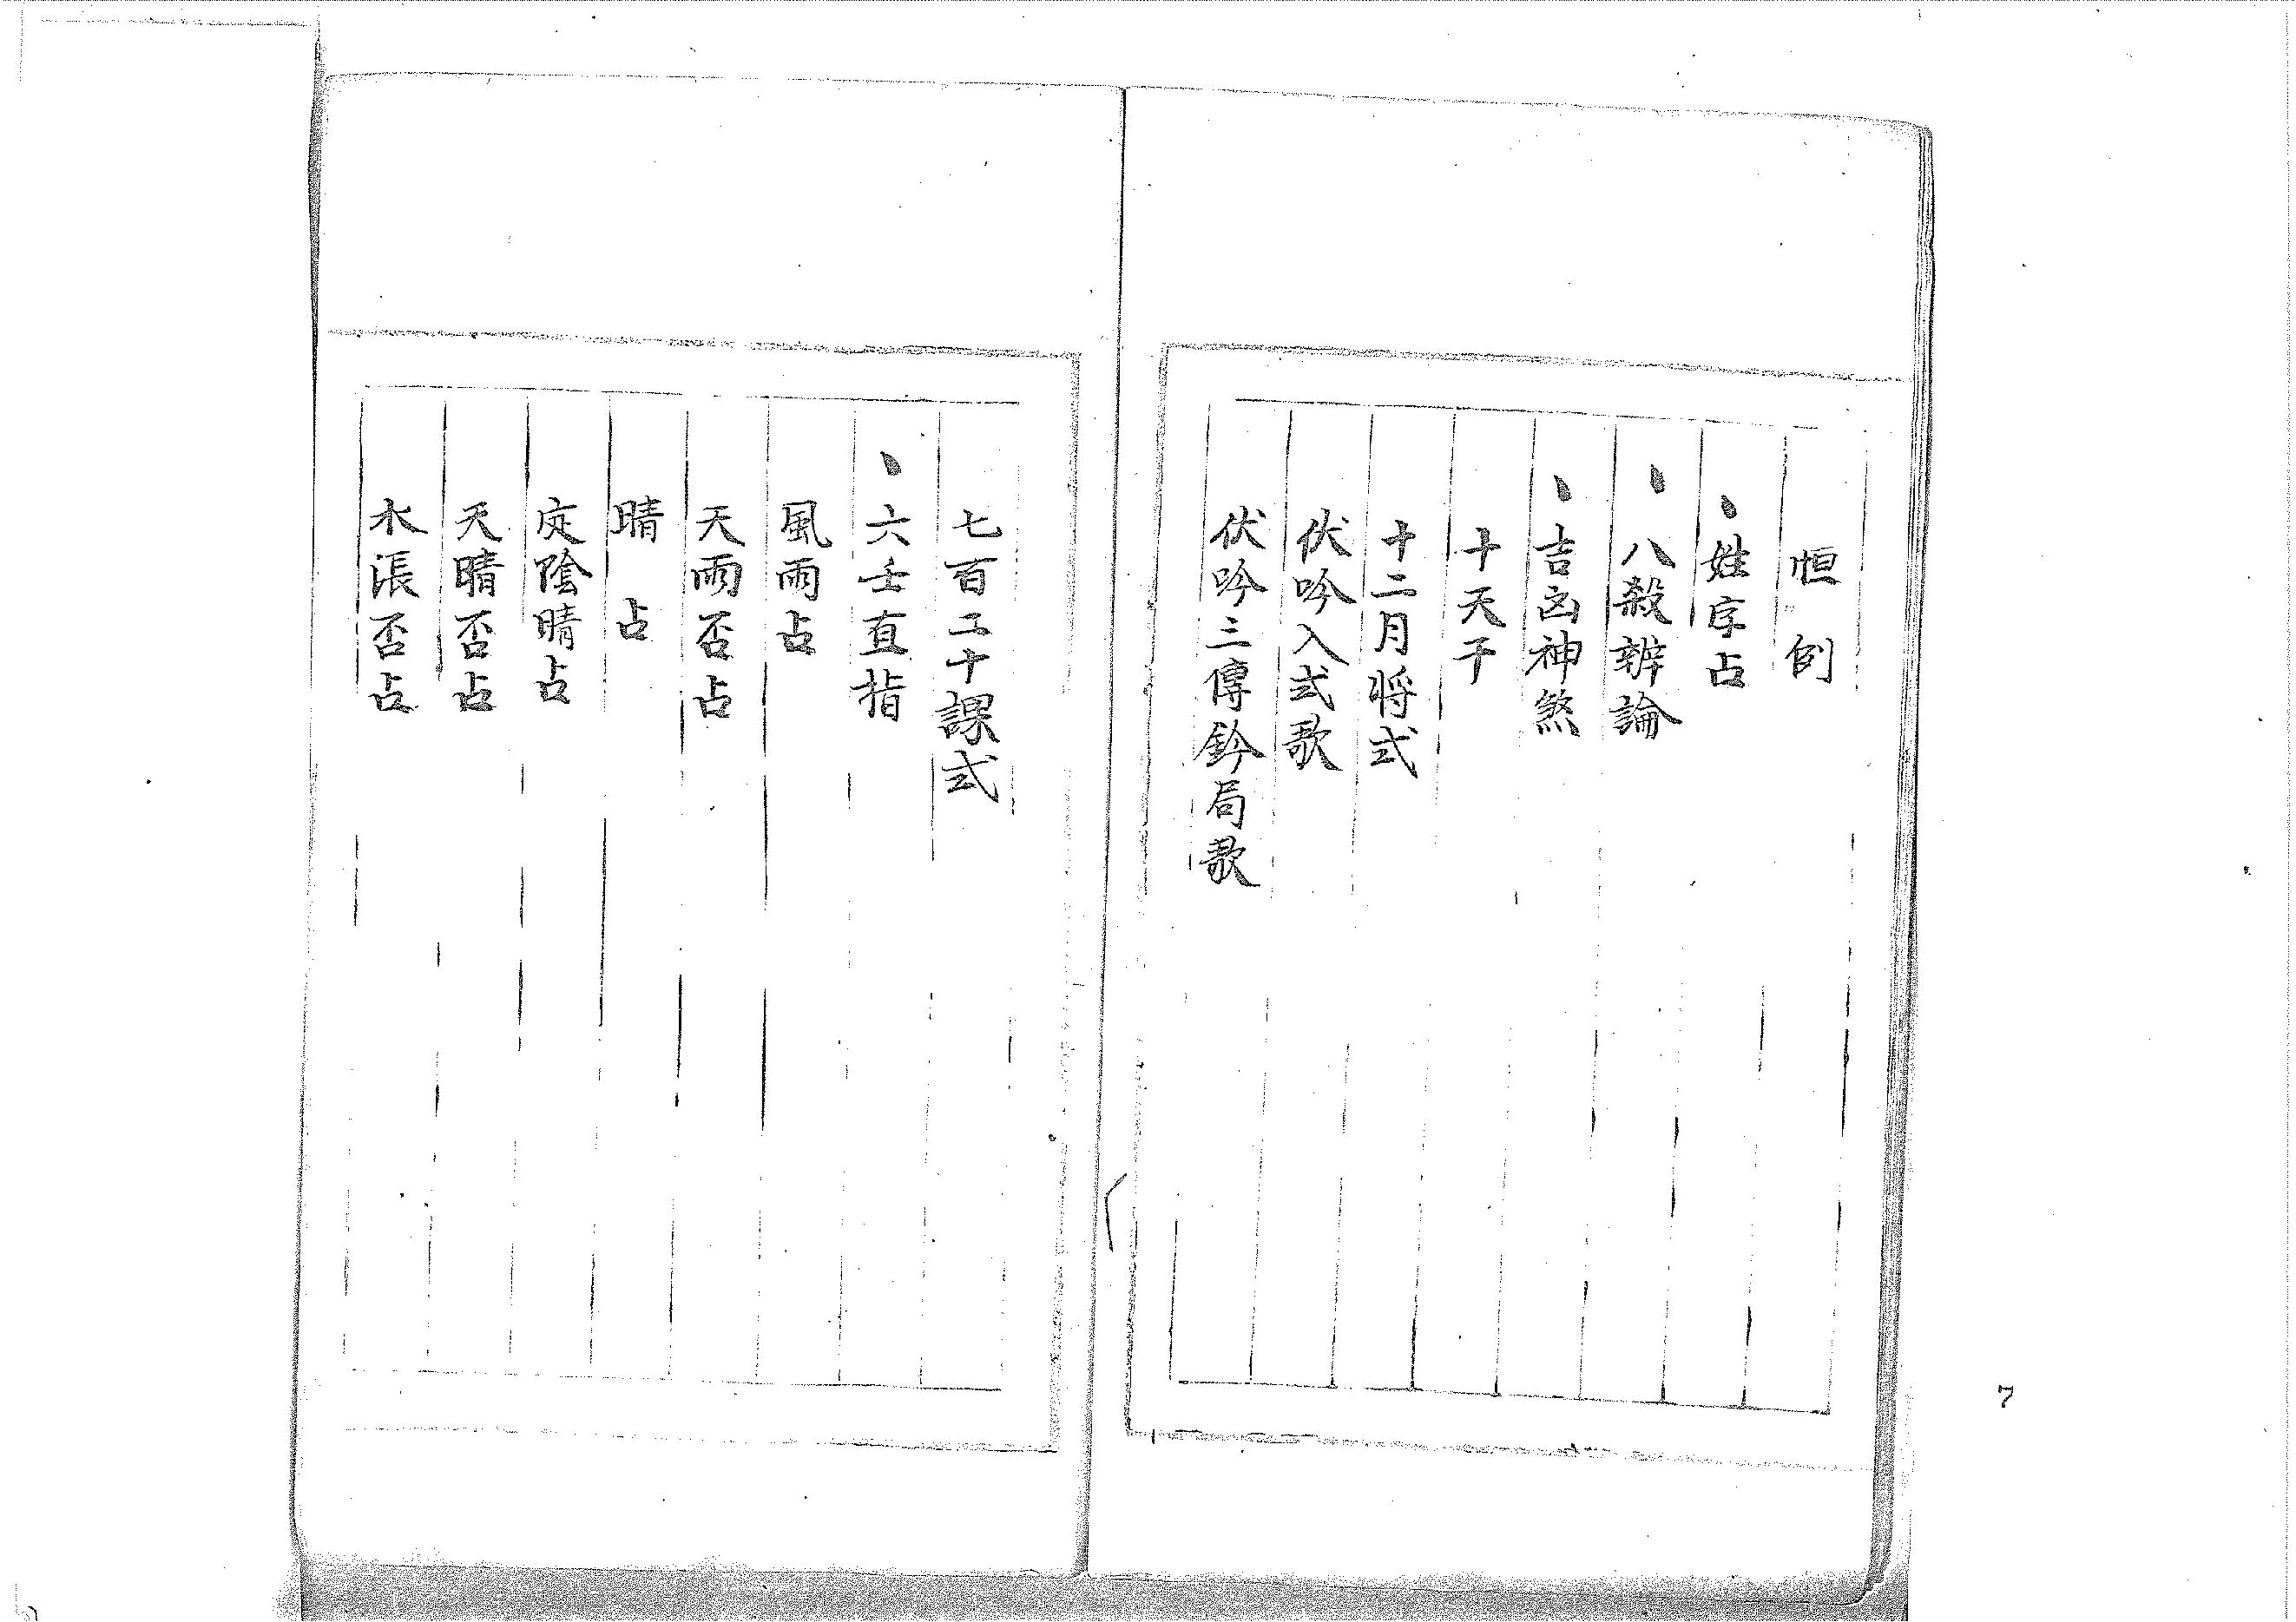 恒例
丶姓字占
丶八殺辨論
丶吉凶神煞
十天干
十二月将式
伏吟入式歌
伏吟三傳鈐局歌
七百二十課式
丶六壬直指
風雨占
天雨否占
晴占
定陰晴占
天晴否占
水漲否占
7